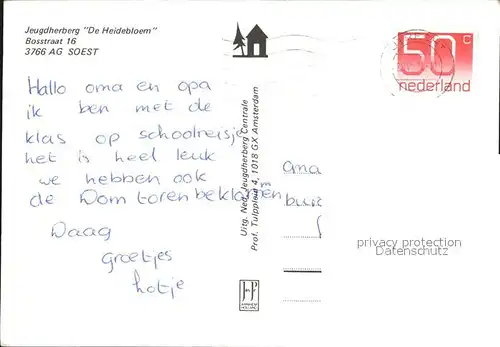 Jeugdherberg "De Heidebloem"
Bosstraat 16
3766 AG SOEST
50 c
nederland
Hallo oma en opa
ik ben met de
klas op schoolreisje
het is heel leuk
we hebben ook
de Dom toren beklommen
Daag
groetjes
Uitg. Ned. Jeugdherberg Centrale
Prof. Tulpplein 4, 1018 GX Amsterdam
oma
privacy protection
Datenschutz